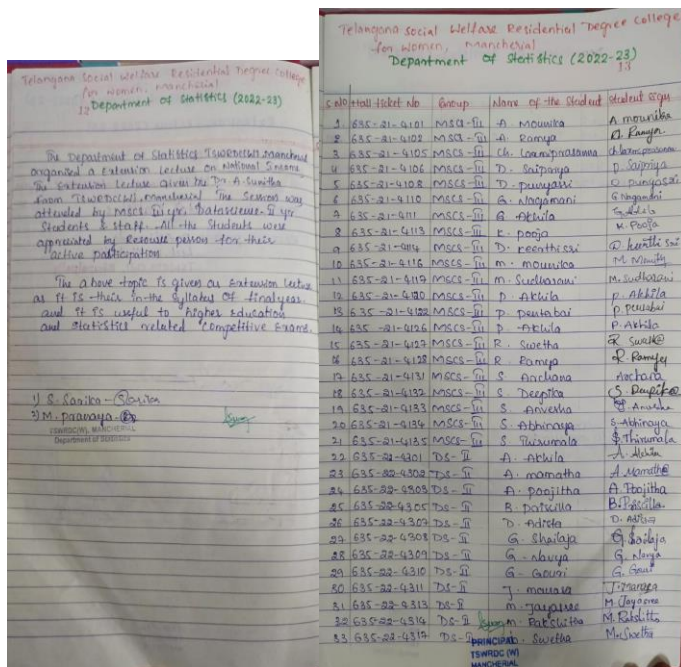 Telangana Social Welfare Residential Degree College
for Women, Mancherial
12 Department of Statistics (2022-23)
The Department of Statistics TSWRDCCW), Mancherial
organised a Extension Lecture on National Income
The Extension Lecture given the Dr. A. Sunitha
from TSWRDCCW), Mancherial The Session was
attended by MSCS III yr, Datascience II yr
Students & Staff. All the Students were
appreciated by Resource person for their
active participation
The above topic is given as Extension Lecture
as it is their in the Syllabus of final year
and it is useful to higher Education
and Statistics related Competitive Exams.
1) S. Sarika - Sarika
2) M. Pranaya -
TSWRDC(W), MANCHERIAL
Department of Statistics
Telangana Social Welfare Residential Degree College
for Women, Mancherial
Department of Statistics (2022-23)
13
S.NO Hall ticket No Group Name of the Student Student Sign
1 635-21-4101 MSCS-III A. Mounika A mounika
2 635-21-4102 MSCS-III A. Ramya A. Ramya
3 635-21-4105 MSCS-III Ch. Laxmiprasanna Ch. laxmiprasanna
4 635-21-4106 MSCS-III D. Saipriya D. Saipriya
5 635-21-4108 MSCS-III D. punyasri D punyasri
6 635-21-4110 MSCS-III G. Nagamani G Nagamani
7 635-21-4111 MSCS-III G. Akhila G. Akhila
8 635-21-4113 MSCS-III K. pooja K. Pooja
9 635-21-4114 MSCS-III D. Keerthi sri D. keerthi sri
10 635-21-4116 MSCS-III m. mounika M.
11 635-21-4117 MSCS-III m. Sudharani M. Sudharani
12 635-21-4120 MSCS-III P. Akhila P. Akhila
13 635-21-4122 MSCS-III P. pentabai P. pentabai
14 635-21-4126 MSCS-III P. Akhila P. Akhila
15 635-21-4127 MSCS-III R. Swetha R Swetha
16 635-21-4128 MSCS-III R. Ramya R Ramya
17 635-21-4131 MSCS-III S Archana Archana
18 635-21-4132 MSCS-III S. Deepika S. Deepika
19 635-21-4133 MSCS-III S. Anvesha Anvesha
20 635-21-4134 MSCS-III S. Abhinaya S. Abhinaya
21 635-21-4135 MSCS-III S Thirumala S. Thirumala
22 635-22-4301 DS-II A. Akhila A. Akhila
23 635-22-4302 DS-II A. mamatha A. Mamatha
24 635-22-4303 DS-II A. poojitha A. Poojitha
25 635-22-4305 DS-II B. priscilla B. Priscilla
26 635-22-4307 DS-II D.
27 635-22-4308 DS-II G. Shailaja G. Sailaja
28 635-22-4309 DS-II G. Navya G. Navya
29 635-22-4310 DS-II G. Gouri G. Gouri
30 635-22-4311 DS-II J.
31 635-22-4313 DS-II m. Jayasree M. Jayasree
32 635-22-4314 DS-II m. Rakshitha M. Rakshitha
33 635-22-4317 DS-II Swetha M. Swetha
PRINCIPAL
TSWRDC (W)
MANCHERIAL